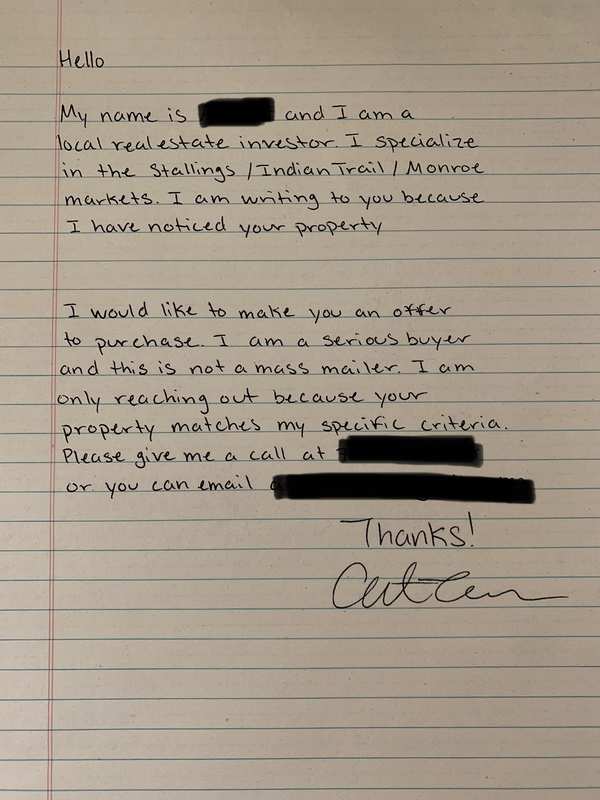 Hello
My name is and I am a
local real estate investor. I specialize
in the Stallings / Indian Trail / Monroe
markets. I am writing to you because
I have noticed your property
I would like to make you an offer
to purchase. I am a serious buyer
and this is not a mass mailer. I am
only reaching out because your
property matches my specific criteria.
Please give me a call at
or you can email
Thanks!